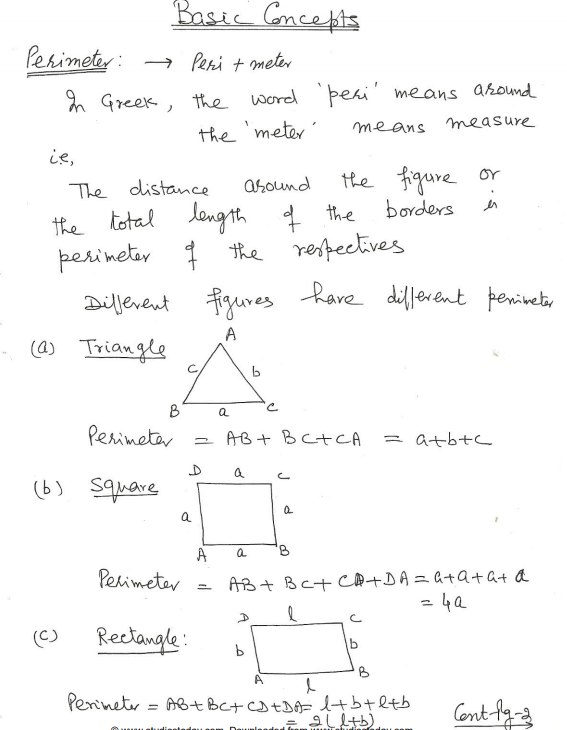 Basic Concepts
Perimeter: → Peri + meter
In Greek, the word 'peri' means around
the 'meter' means measure
ie,
The distance around the figure or
the total length of the borders is
perimeter of the respectives
Different figures have different perimeter
(a) Triangle
A
c b
B a C
Perimeter = AB + BC + CA = a+b+c
(b) Square
D a C
a a
A a B
Perimeter = AB + BC + CD + DA = a+a+a+a
= 4a
(c) Rectangle:
D l C
b b
A l B
Perimeter = AB + BC + CD + DA = l+b+l+b
= 2(l+b)
Cont-Pg-2
© www.studiestoday.com Downloaded from www.studiestoday.com